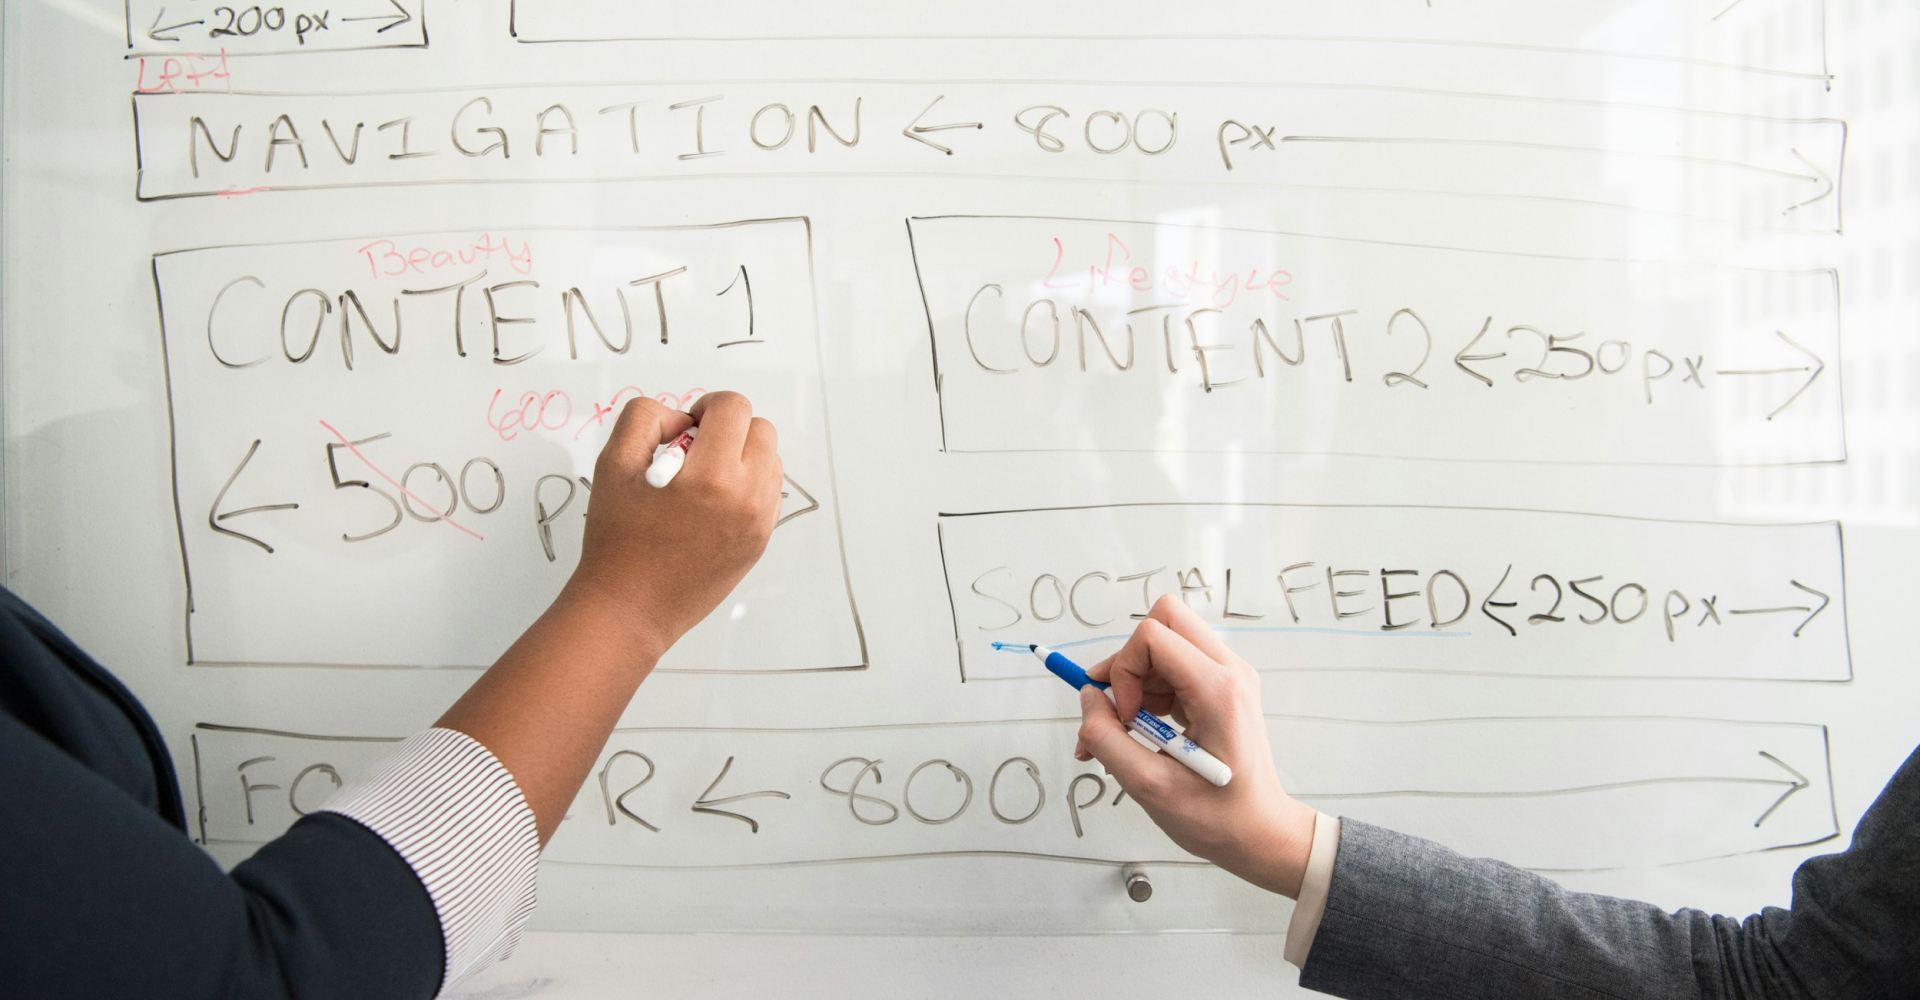 ←200px→
Left
NAVIGATION ← 800 px→
Beauty
CONTENT 1
600 x
← 500 px →
Lifestyle
CONTENT 2 ←250px→
SOCIAL FEED ←250px→
← 800px →